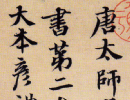 唐太師
書第二
大本彦